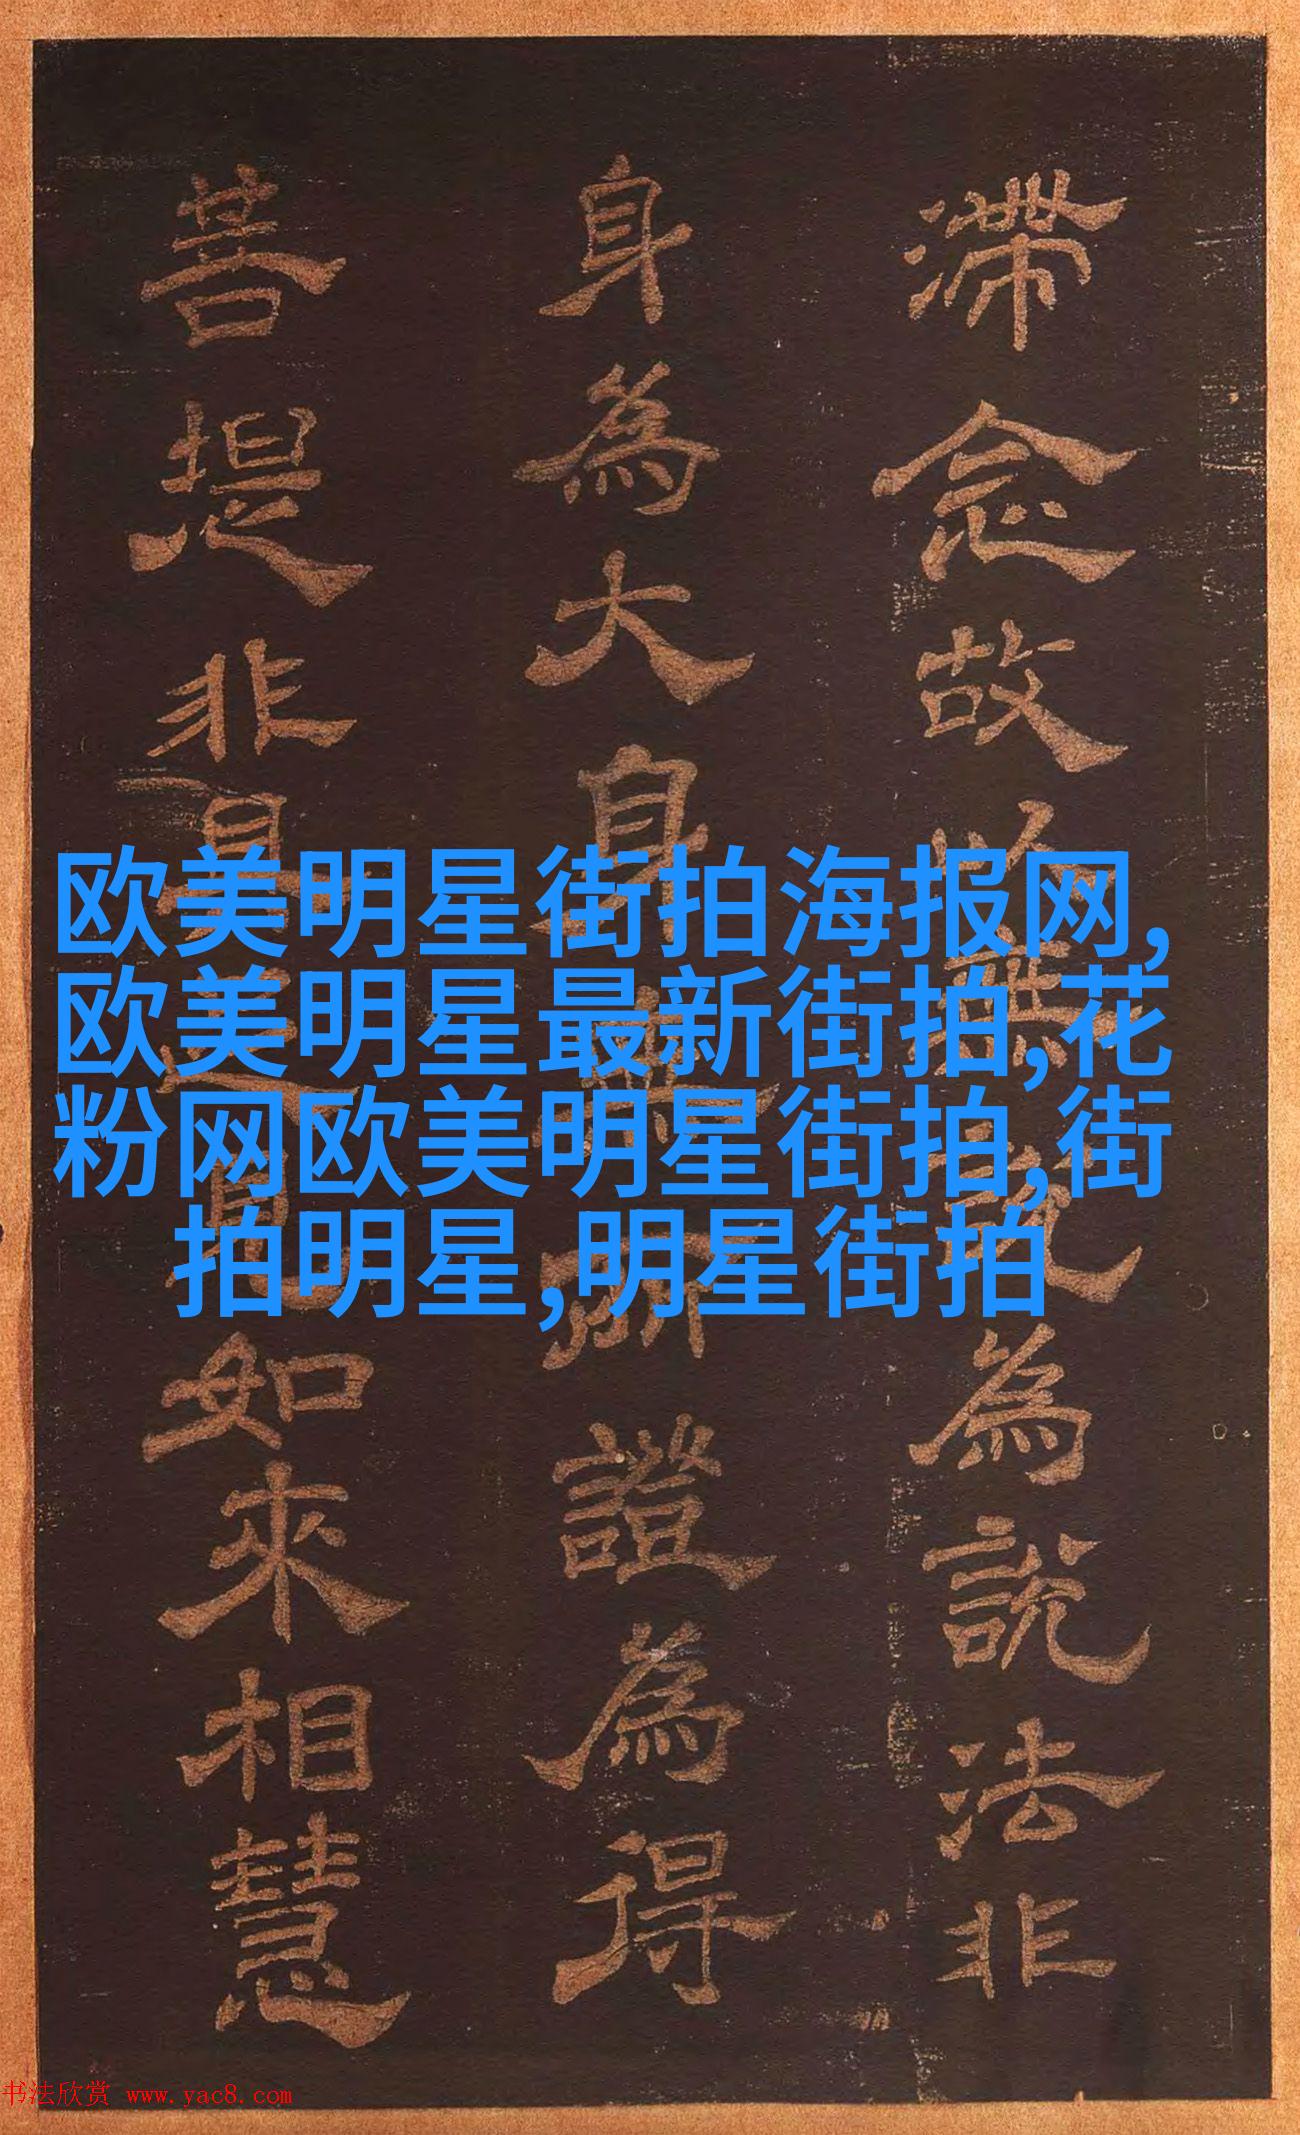 欧美明星街拍海报网,
欧美明星最新街拍,花
粉网欧美明星街拍,街
拍明星,明星街拍
滯念故以無說為說法非
身為大身無所證為得
菩提非如來相慧
书法欣赏 www.yac8.com